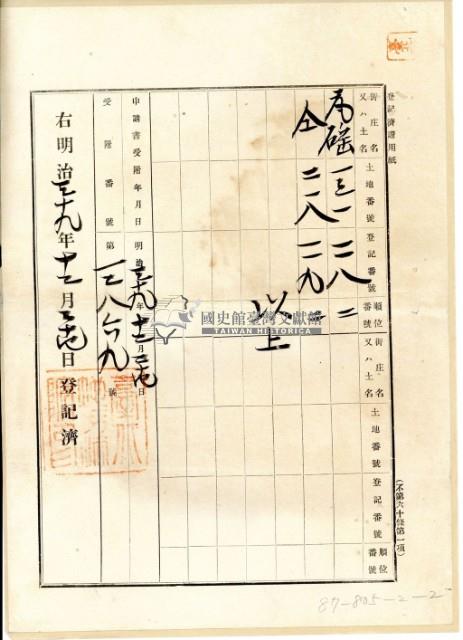 登記濟證用紙
街庄名又ハ土名 土地番號 登記番號 順位番號 街庄名又ハ土名 土地番號 登記番號 順位番號
瓦磘 一三一 二八 二
仝 二一八 二九 二
以上
申請書受附年月日 明治三九年十二月二七日
受附番號 第一三八六九號
右明治三十九年十二月二七日登記濟
(不第六十條第一項)
國史館臺灣文獻館
TAIWAN HISTORICA
87-805-2-2